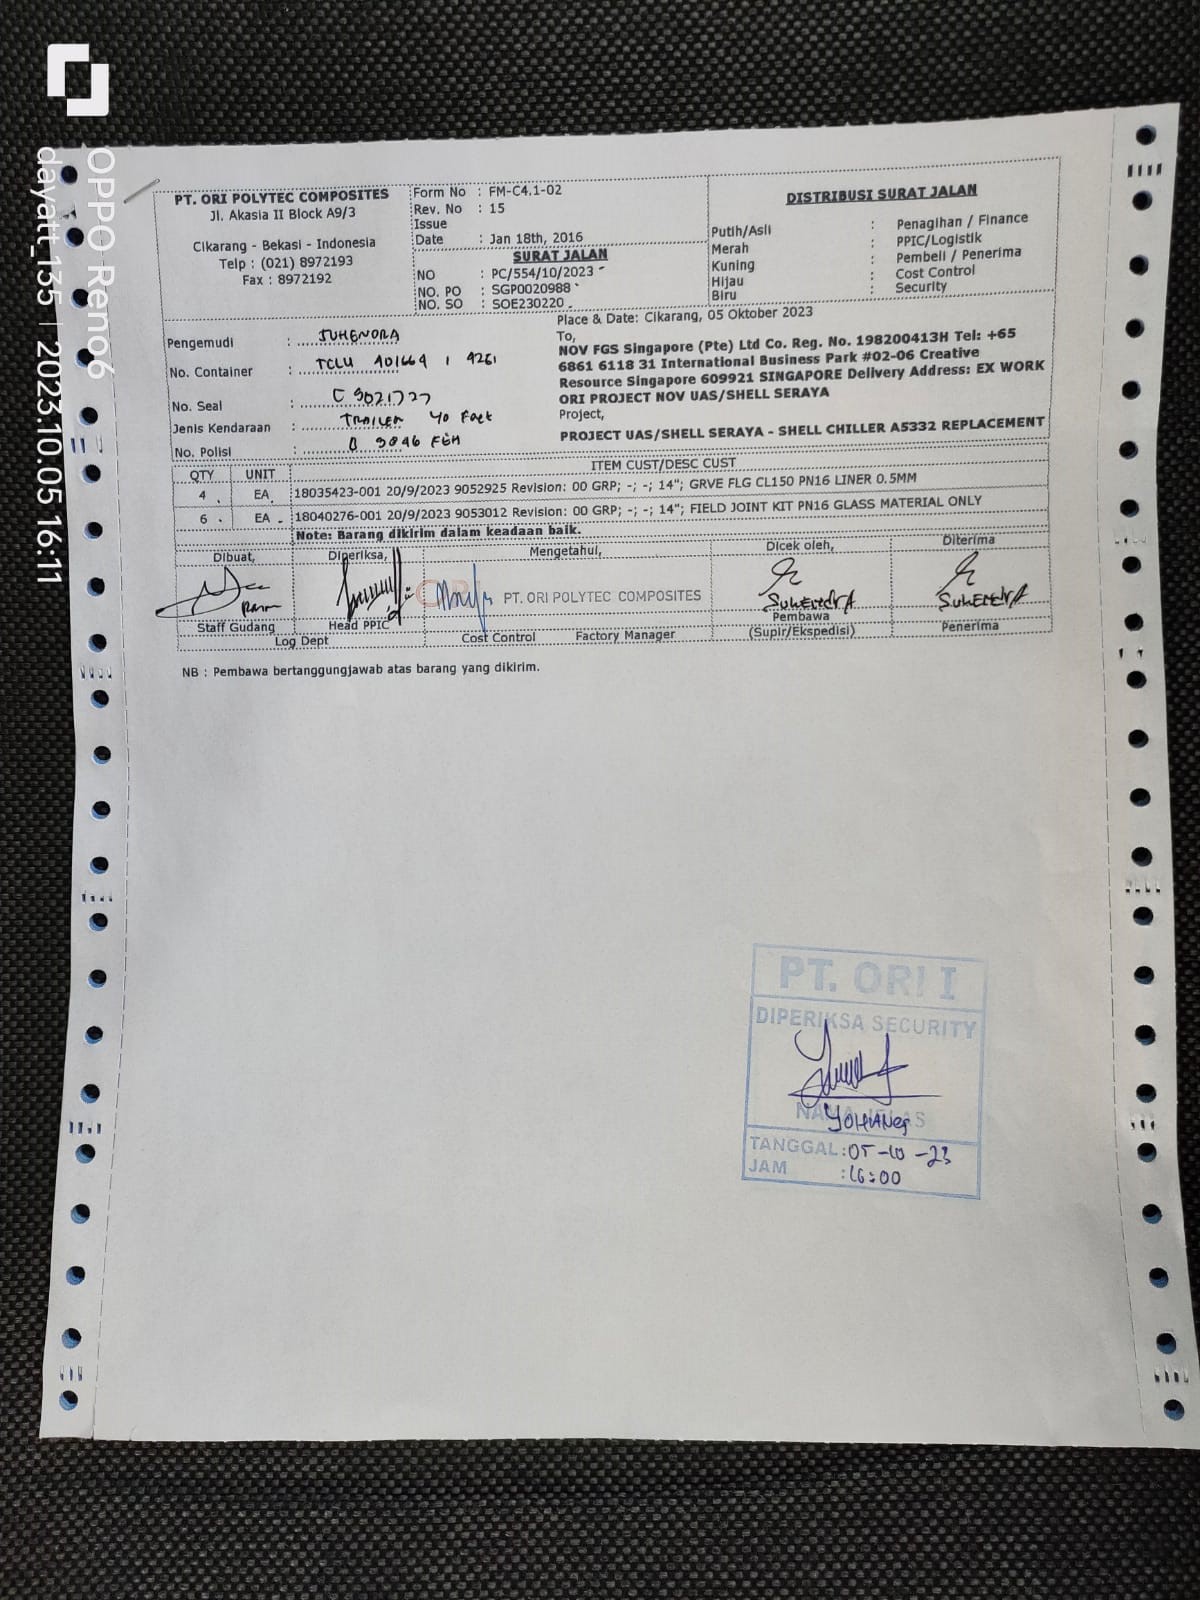 PT. ORI POLYTEC COMPOSITES
Jl. Akasia II Block A9/3
Cikarang - Bekasi - Indonesia
Telp : (021) 8972193
Fax : 8972192
Form No : FM-C4.1-02
Rev. No : 15
Issue
Date : Jan 18th, 2016
SURAT JALAN
NO : PC/554/10/2023
NO. PO : SGP0020988
NO. SO : SOE230220
DISTRIBUSI SURAT JALAN
Putih/Asli : Penagihan / Finance
Merah : PPIC/Logistik
Kuning : Pembeli / Penerima
Hijau : Cost Control
Biru : Security
Pengemudi :
No. Container : TCLU 901669 1 4261
No. Seal :
Jenis Kendaraan : TRAILER 40 Feet
No. Polisi : B 9046 FEH
Place & Date: Cikarang, 05 Oktober 2023
To,
NOV FGS Singapore (Pte) Ltd Co. Reg. No. 198200413H Tel: +65
6861 6118 31 International Business Park #02-06 Creative
Resource Singapore 609921 SINGAPORE Delivery Address: EX WORK
ORI PROJECT NOV UAS/SHELL SERAYA
Project,
PROJECT UAS/SHELL SERAYA - SHELL CHILLER A5332 REPLACEMENT
QTY UNIT ITEM CUST/DESC CUST
4 EA 18035423-001 20/9/2023 9052925 Revision: 00 GRP; -; -; 14"; GRVE FLG CL150 PN16 LINER 0.5MM
6 EA 18040276-001 20/9/2023 9053012 Revision: 00 GRP; -; -; 14"; FIELD JOINT KIT PN16 GLASS MATERIAL ONLY
Note: Barang dikirim dalam keadaan baik.
Dibuat, Diperiksa, Mengetahui, Dicek oleh, Diterima
ORI PT. ORI POLYTEC COMPOSITES
SUHENDRA SUHENDRA
Staff Gudang Head PPIC Cost Control Factory Manager Pembawa Penerima
Log Dept (Supir/Ekspedisi)
NB : Pembawa bertanggungjawab atas barang yang dikirim.
PT. ORI I
DIPERIKSA SECURITY
NAMA JELAS
YOHANES
TANGGAL : 05-10-23
JAM : 16:00
OPPO Reno6
dayatt_135 | 2023.10.05 16:11